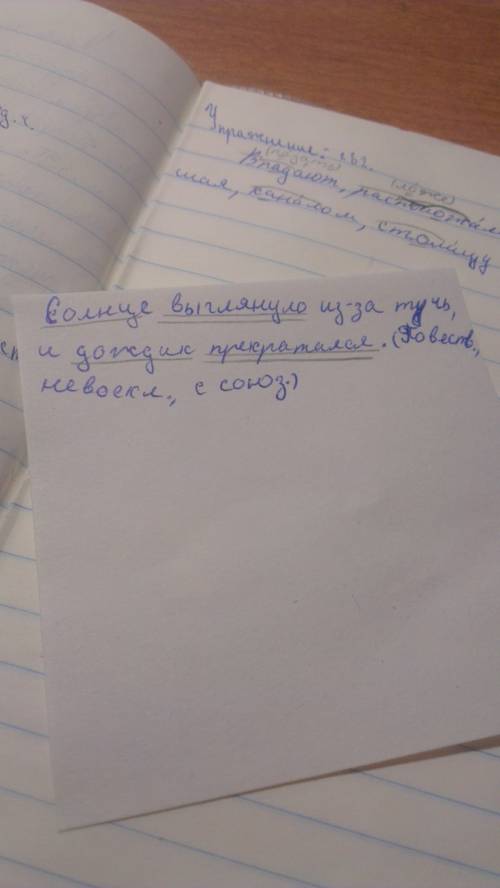 д. г.
Упражнение: 282.
(падать) (ложе)
Впадают, располож
мая, каналом, столицу
Солнце выглянуло из-за тучь,
и дождик прекратился. (Повеств.,
невоскл., с союз.)